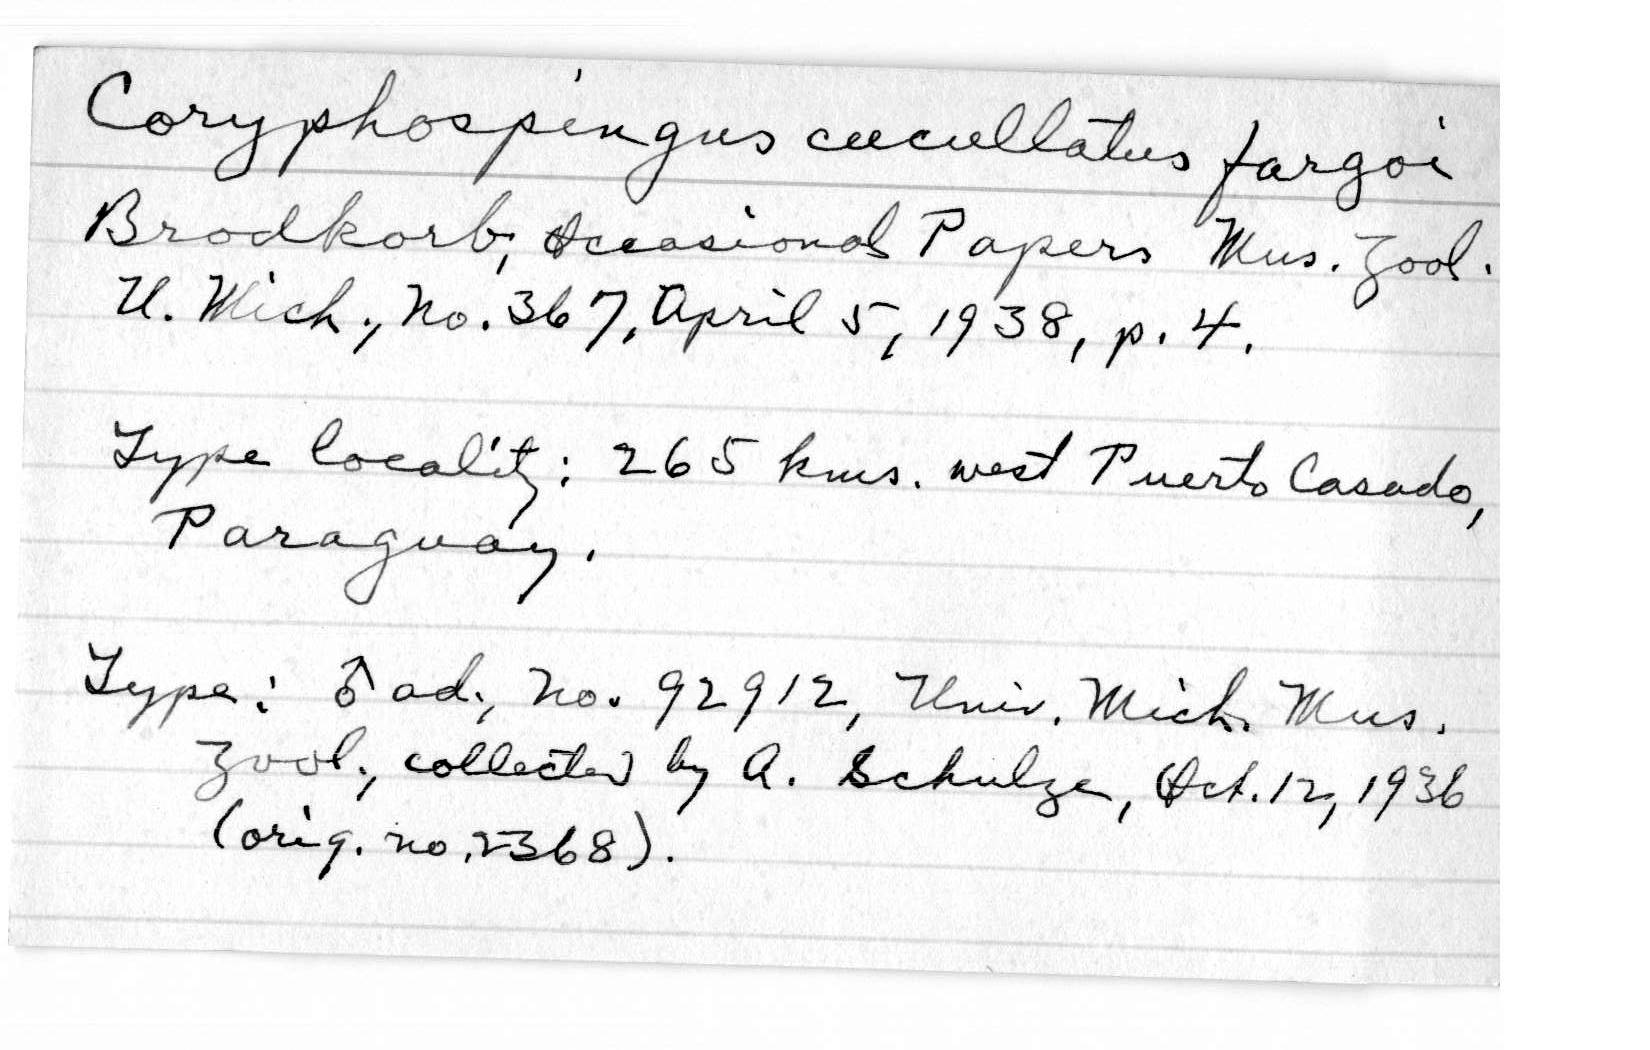 Coryphospingus cucullatus fargoi
Brodkorb, Occasional Papers Mus. Zool.
U. Mich., No. 367, April 5, 1938, p. 4.
Type locality: 265 kms. west Puerto Casado,
Paraguay.
Type: ♂ ad., No. 92912, Univ. Mich. Mus.
Zool., collected by A. Schulze, Oct. 12, 1936
(orig. no. 2368).